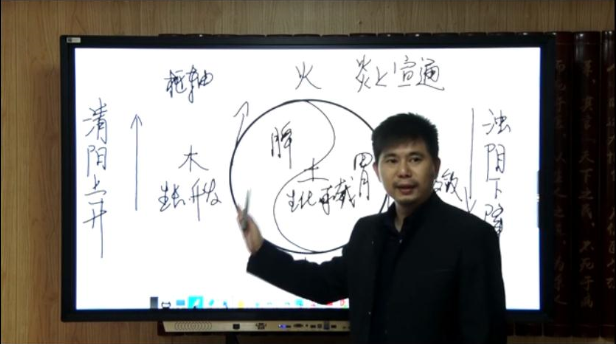 枢轴
火 炎上宣通
清阳上升
脾
木
生长升发
土
生化承载
胃
浊阴下降